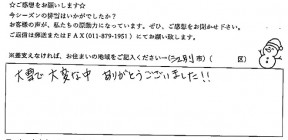 ☆ご感想をお願いします☆
今シーズンの排雪はいかがでしたか？
お客様の声が、私たちの原動力になっています。ぜひ、ご感想をお聞かせ下さい。
ご返信は郵送またはFAX(011-879-1951)にてお願い致します。
※差支えなければ、お住まいの地域をご記入ください→(江別市)( 区)
大雪で大変な中 ありがとうございました!!